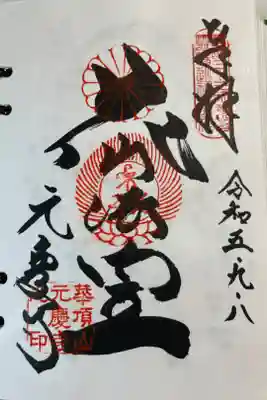 奉拝
令和五、九、八
花山法皇
元慶寺
華頂山
元慶寺印